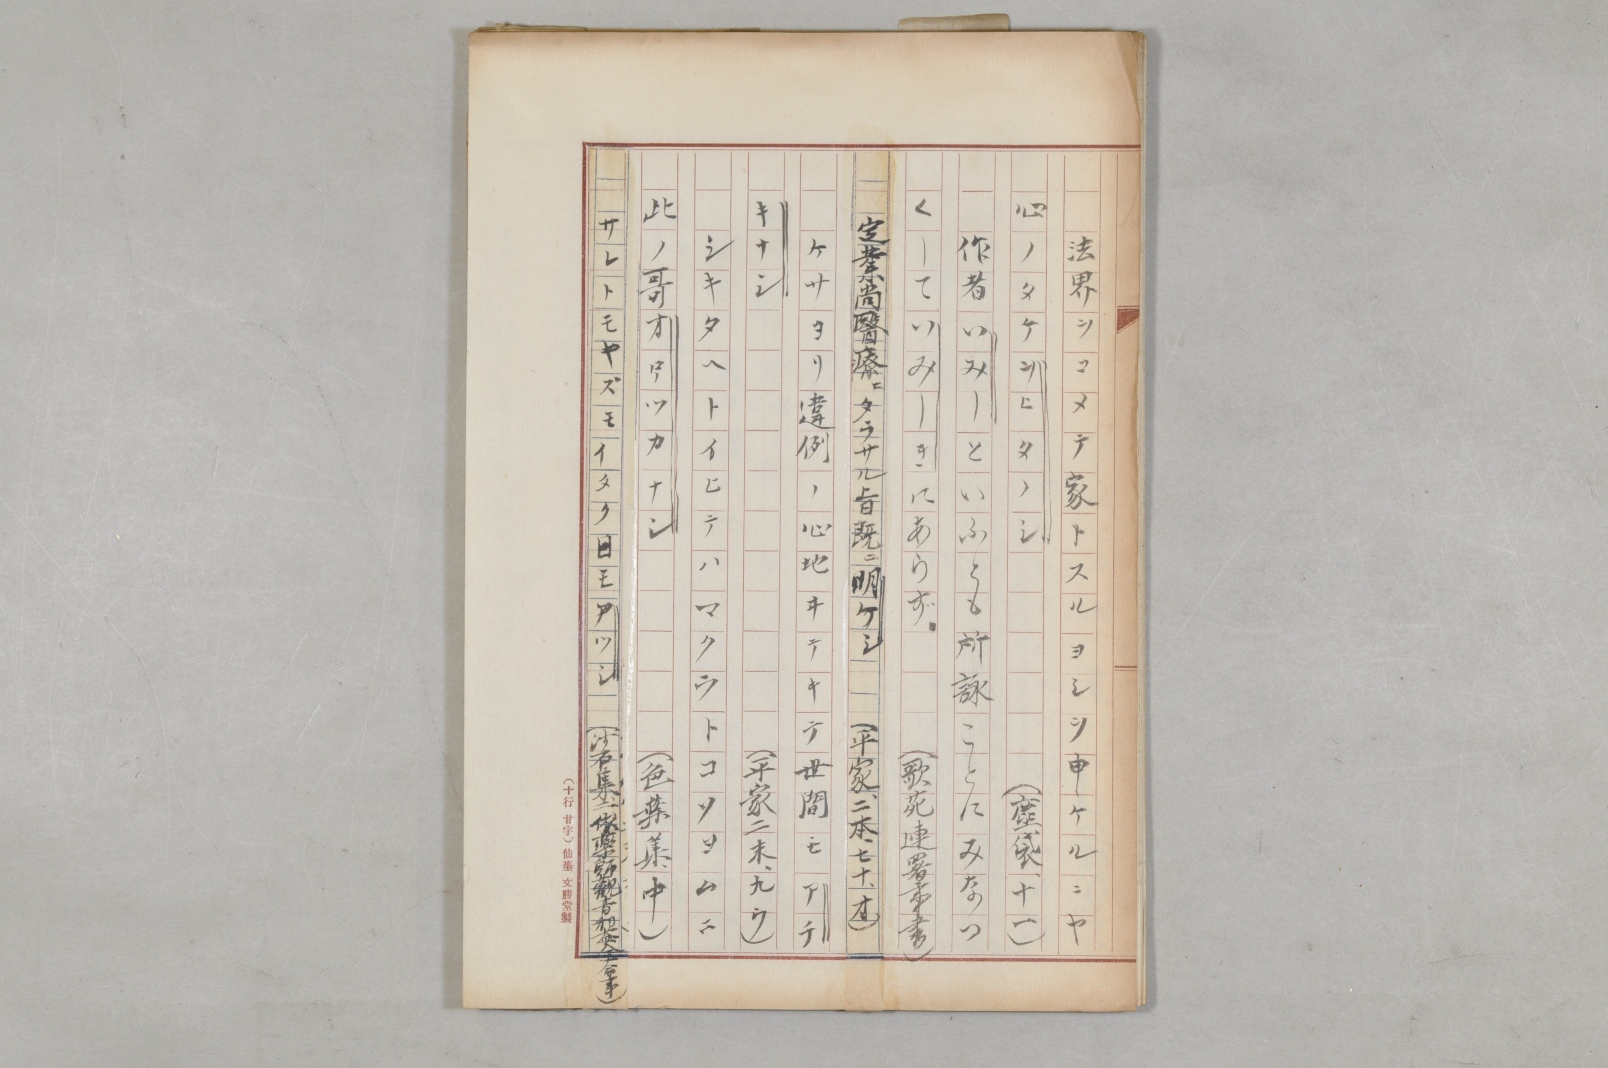 法界ヲコメテ家トスルヨシヲ申ケルニヤ
心ノタケヲヒタノシ(塵袋、十一)
作者いみしといふとも所詠ことにみなつ
くしていみしきにあらず。(歌苑連署事書)
定業尚醫療ニタラサル旨既ニ明ケシ(平家、二本、七十、オ)
ケサヨリ違例ノ心地ヰテキテ世間モアヂ
キナシ(平家二末、九ウ)
シキタヘトイヒテハマクラトコソヨムニ
此ノ哥オボツカナシ(色葉集、中)
サレトモヤズモイタク日モアツシ(沙石集二、薬師観音事)
(十行 廿字) 仙臺 文勝堂製